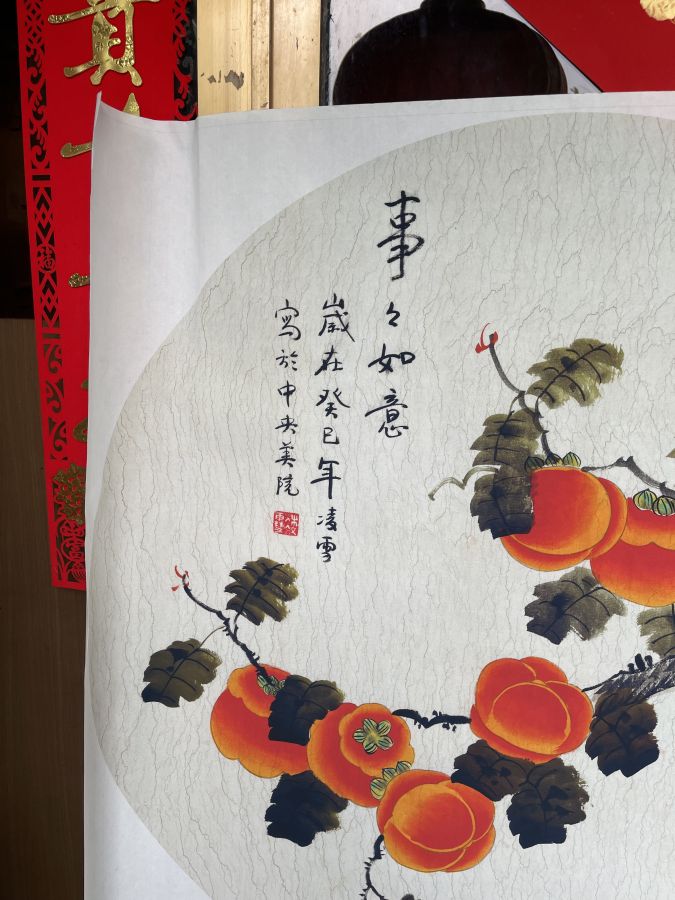 事々如意
歲在癸巳年凌雪
寫於中央美院
貴
福